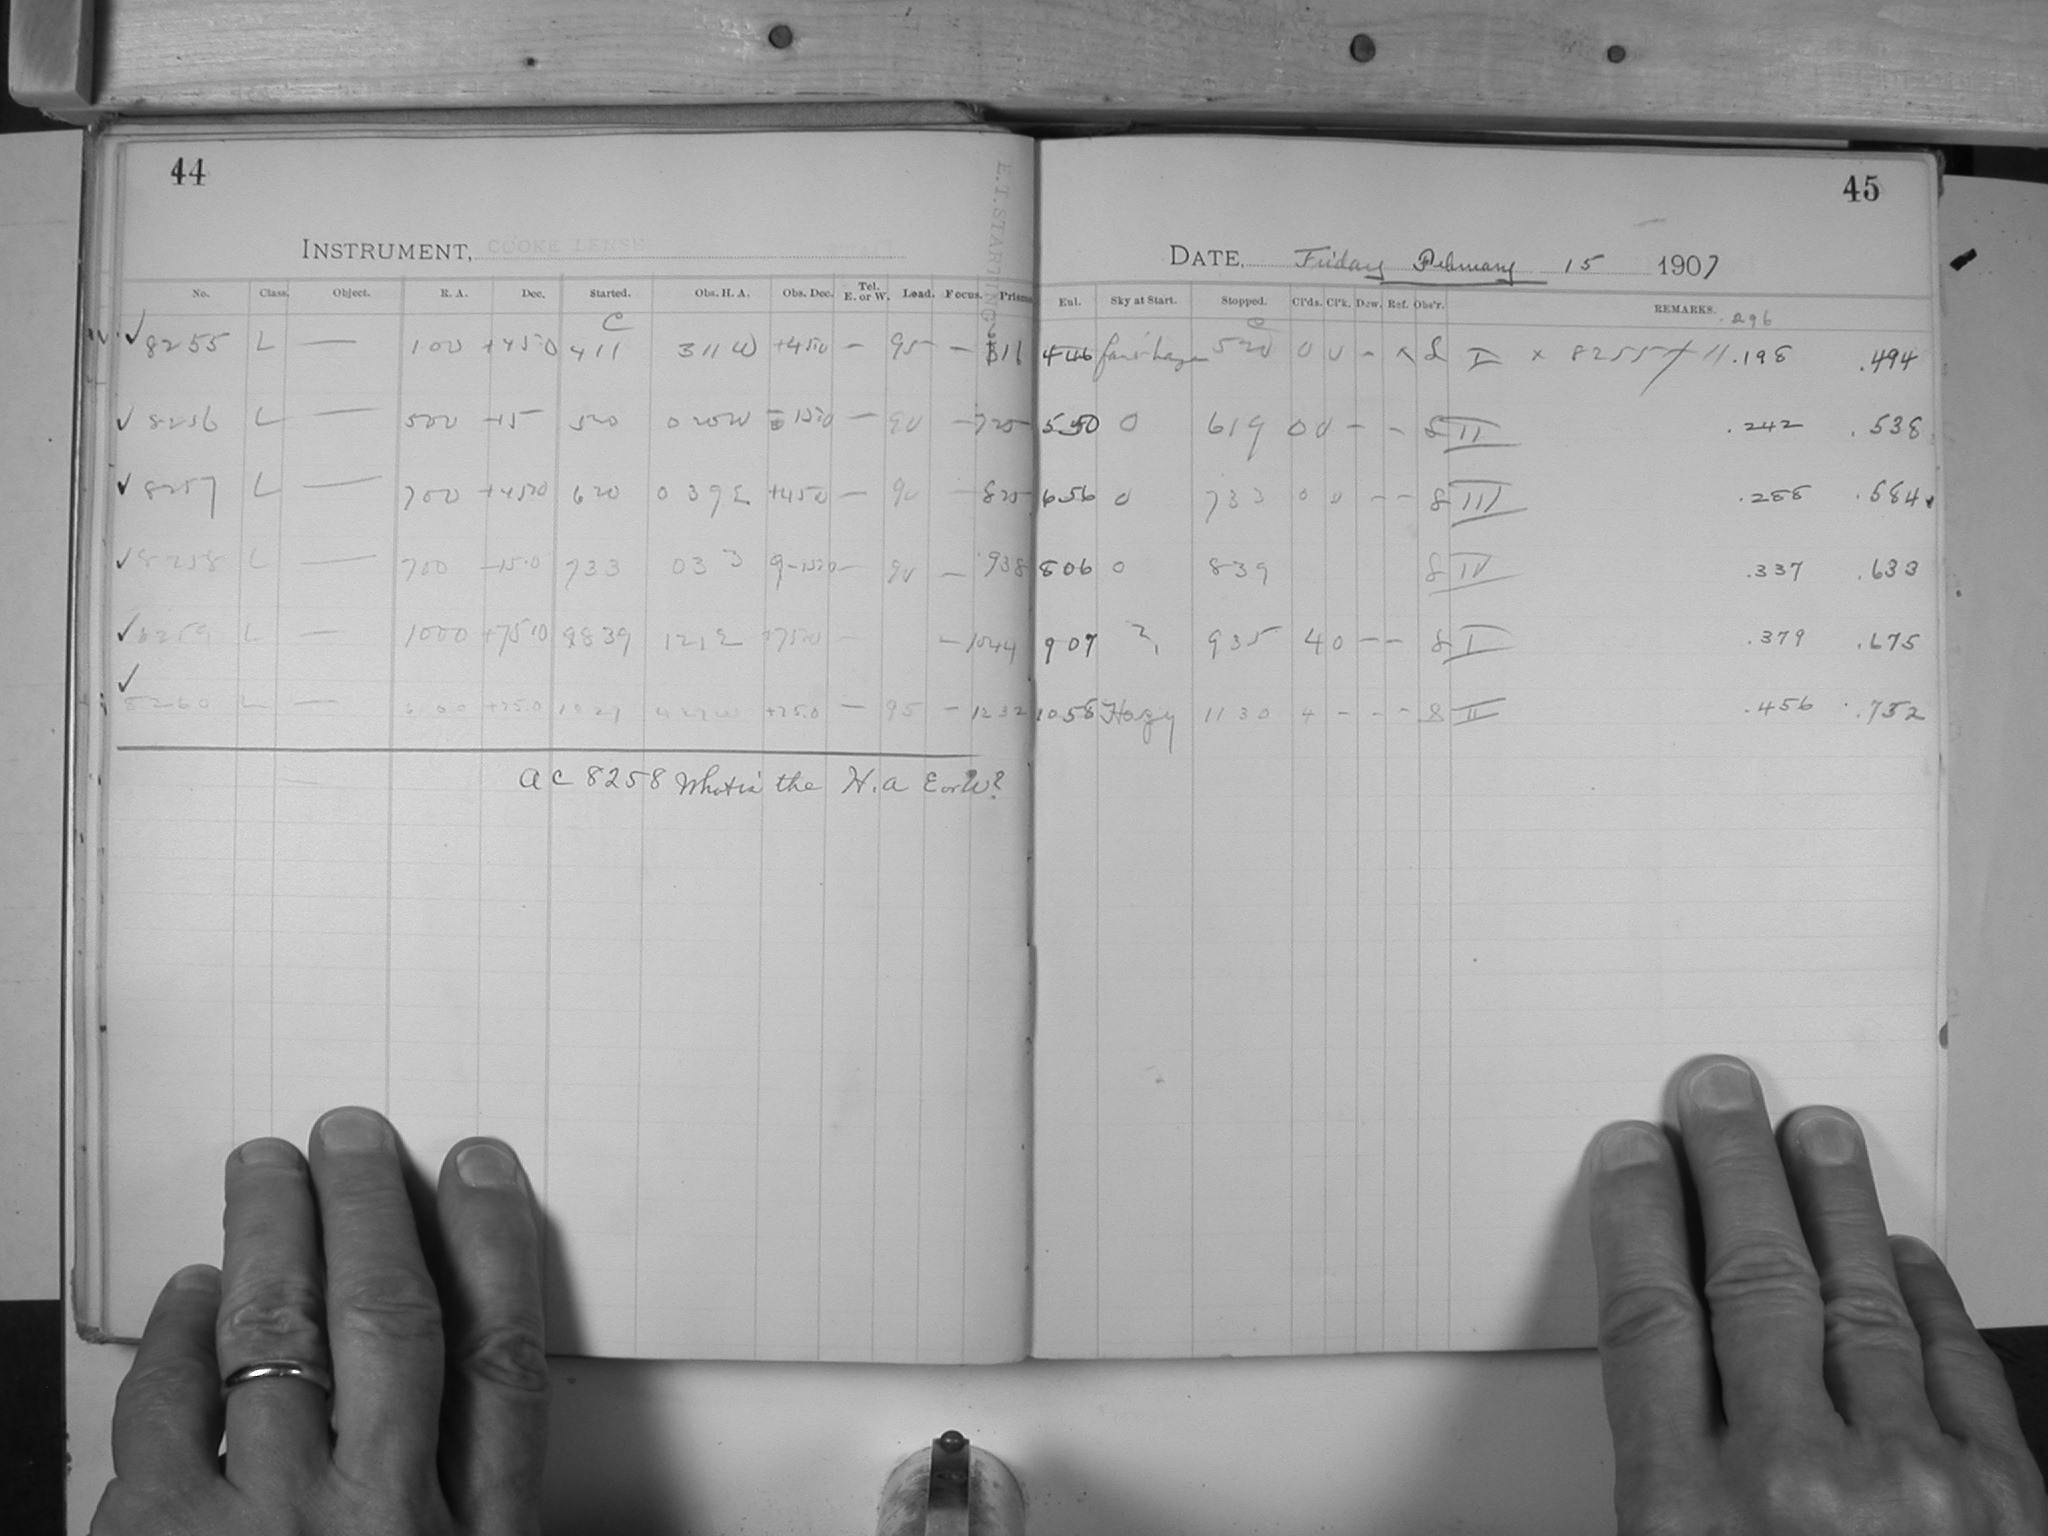 44
INSTRUMENT, COOKE LENSE
E.T. STARTING
No. Class. Object. R. A. Dec. Started. Obs. H. A. Obs. Dec. Tel. E. or W. Load. Focus. Prism
C
✓ 8255 L — 100 +45.0 411 311 W +45.0 — 95 — 816
✓ 8256 L — 500 -15 520 020 W -15.0 — 90 — 720
✓ 8257 L — 700 +45.0 620 039 E +45.0 — 90 — 825
✓ 8258 L — 700 -15.0 733 033 -15.0 — 90 — 938
✓ 8259 L — 1000 +75.0 839 121 E +75.0 — — 1044
✓ 8260 L — +25.0 +25.0 — 95 — 1232
A C 8258 What is the H. A E or W?
45
DATE, Friday February 15 1907
Eul. Sky at Start. Stopped. Cl'ds. Cl'k. Dew. Ref. Obs'r. REMARKS.
.296
446 520 0 0 – I × 8255 .198 .494
550 0 619 0 0 – – II .242 .538
656 0 733 0 0 – – III .288 .584
806 0 839 IV .337 .633
907 935 4 0 – – I .379 .675
1058 Hazy 1130 4 – – – II .456 .752